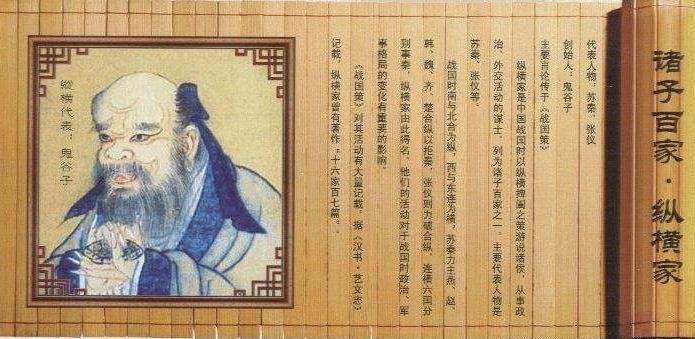 诸子百家·纵横家
代表人物：苏秦、张仪
创始人：鬼谷子
主要言论传于《战国策》
纵横家是中国战国时以纵横捭阖之策游说诸侯，从事政
治、外交活动的谋士，列为诸子百家之一。主要代表人物是
苏秦、张仪等。
战国时南与北合为纵，西与东连为横，苏秦力主燕、赵、
韩、魏、齐、楚合纵以拒秦，张仪则力破合纵，连横六国分
别事秦，纵横家由此得名。他们的活动对于战国时政治、军
事格局的变化有重要的影响。
《战国策》对其活动有大量记载。据《汉书·艺文志》
记载，纵横家曾有著作“十六家百七篇”。
纵横代表：鬼谷子